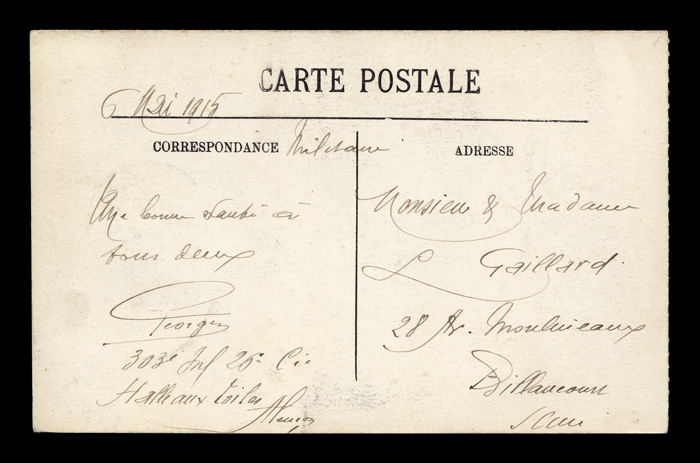 CARTE POSTALE
6 Mai 1915
CORRESPONDANCE Militaire
ADRESSE
Une bonne Santé à
tous deux
Georges
303e Inf 26e Cie
Halle aux toiles
Alençon
Monsieur & Madame
L Gaillard.
28 Av. Moulineaux
Billancourt
Seine